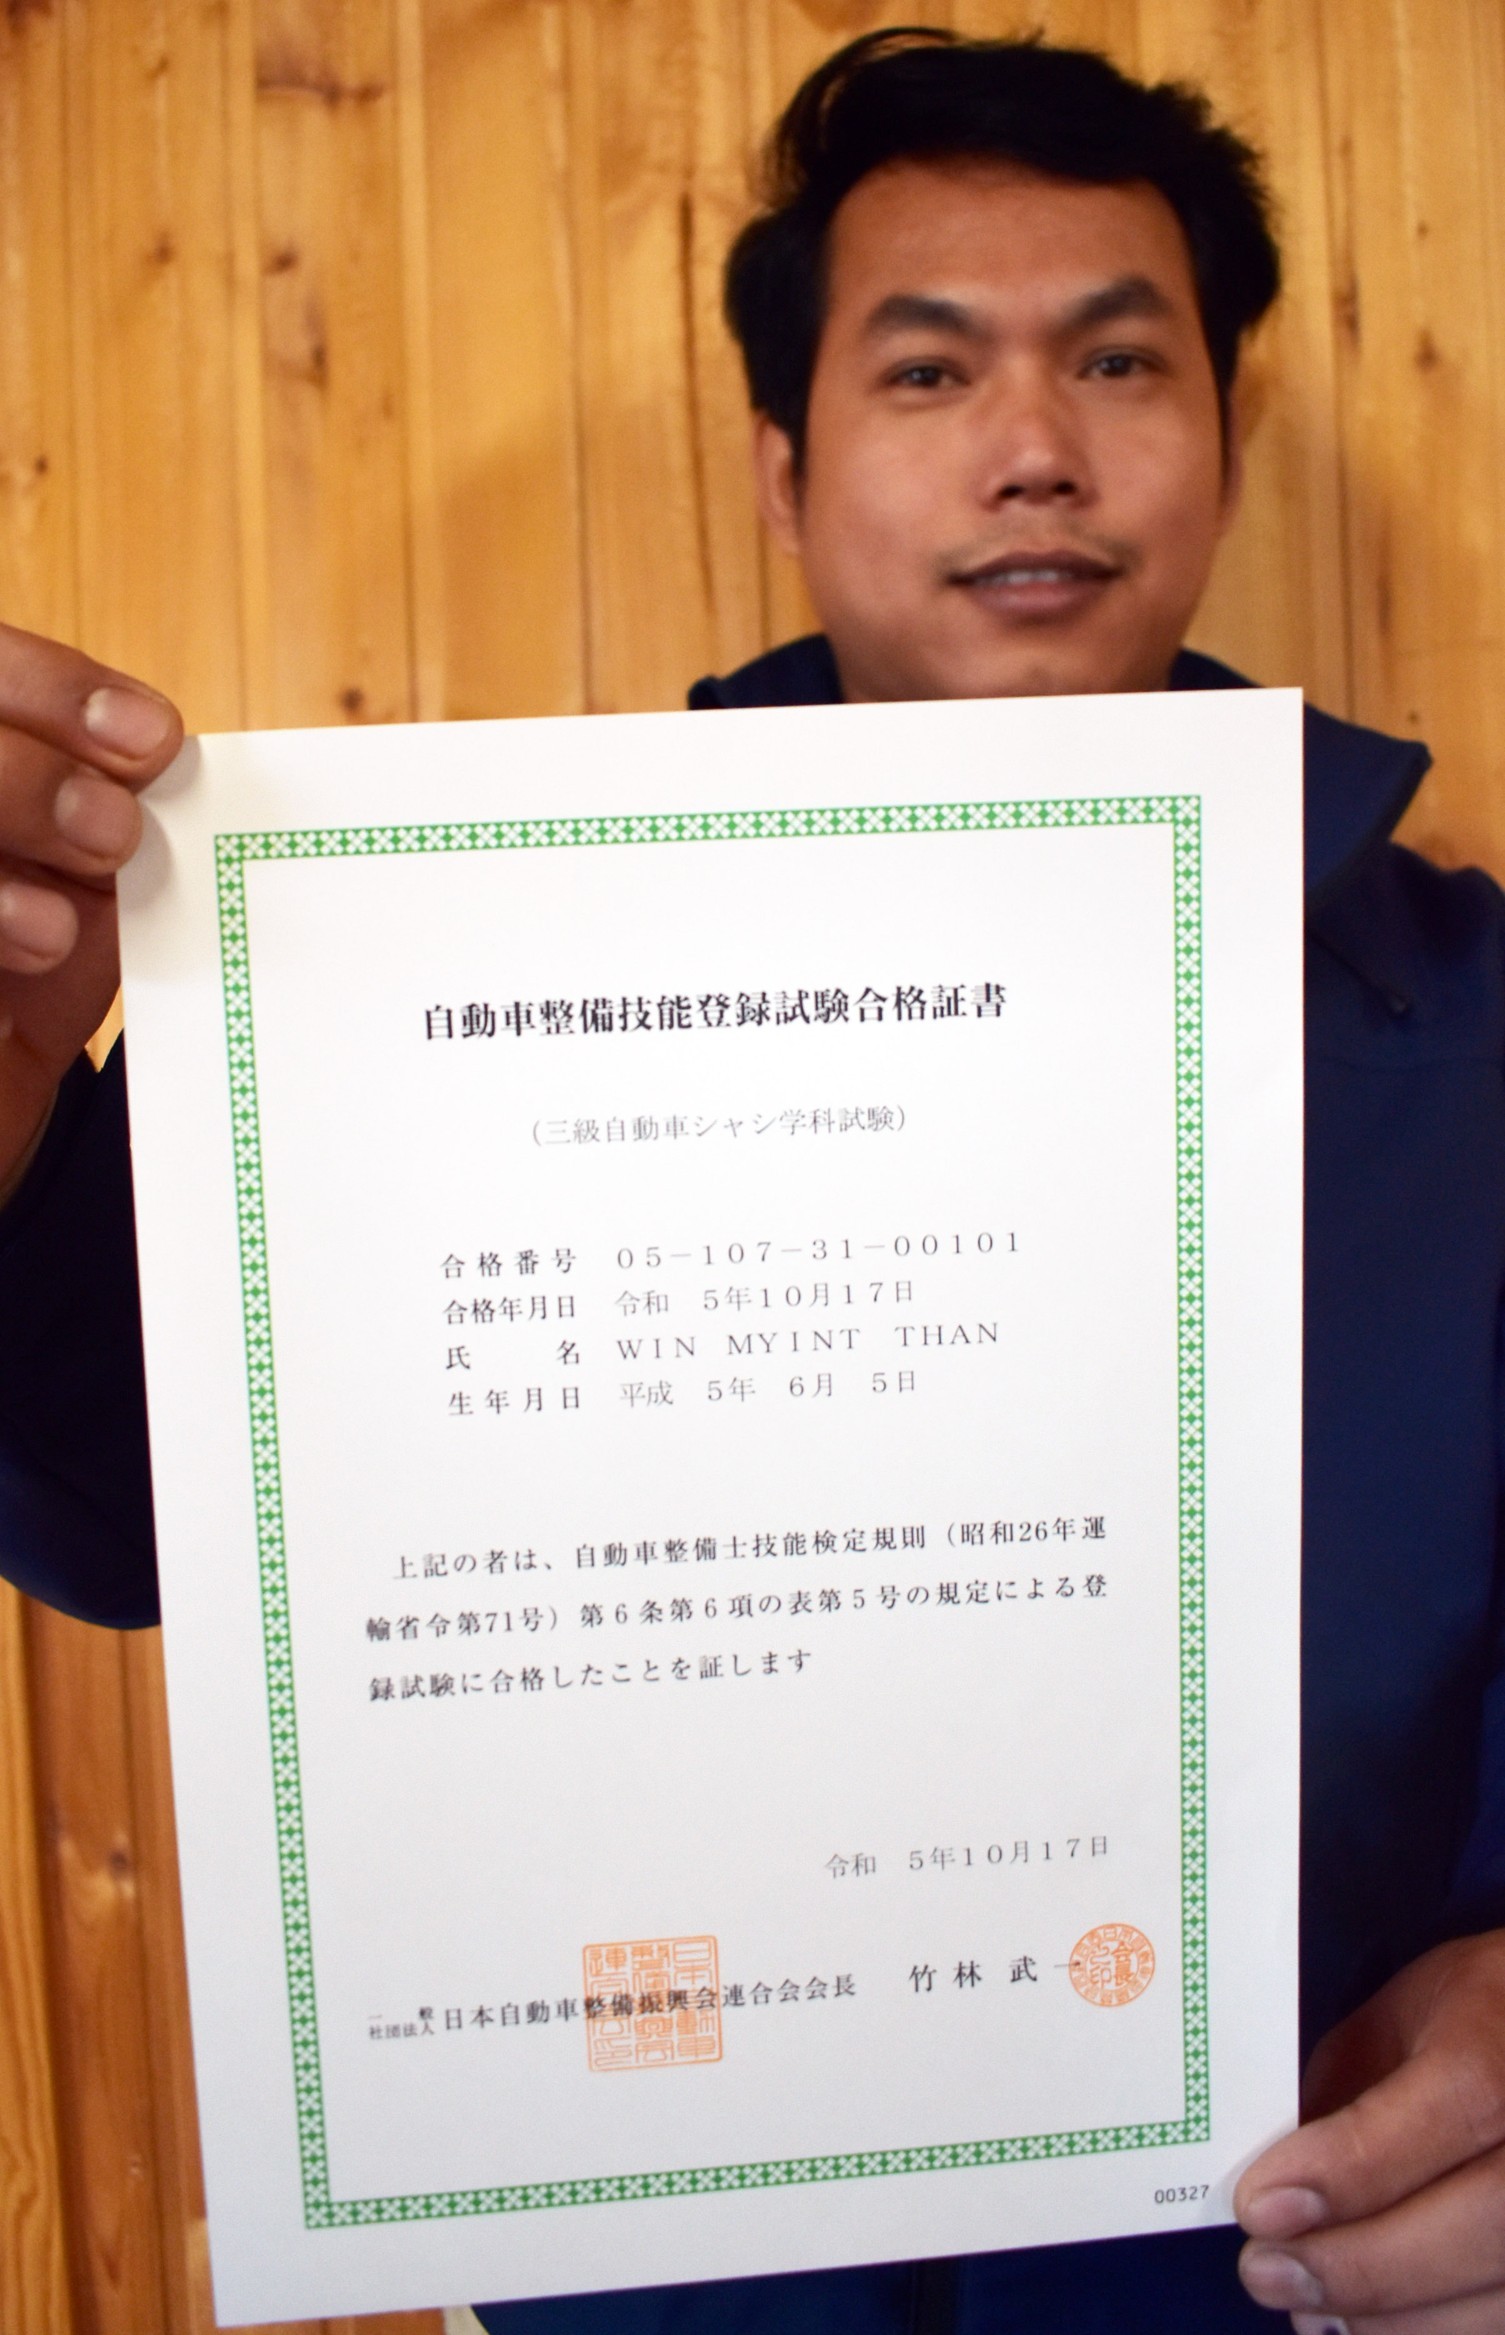 自動車整備技能登録試験合格証書
(三級自動車シャシ学科試験)
合格番号 05-107-31-00101
合格年月日 令和 5年10月17日
氏名 WIN MYINT THAN
生年月日 平成 5年 6月 5日
上記の者は、自動車整備士技能検定規則（昭和26年運
輸省令第71号）第6条第6項の表第5号の規定による登
録試験に合格したことを証します
令和 5年10月17日
一般社団法人 日本自動車整備振興会連合会会長 竹林 武一
00327